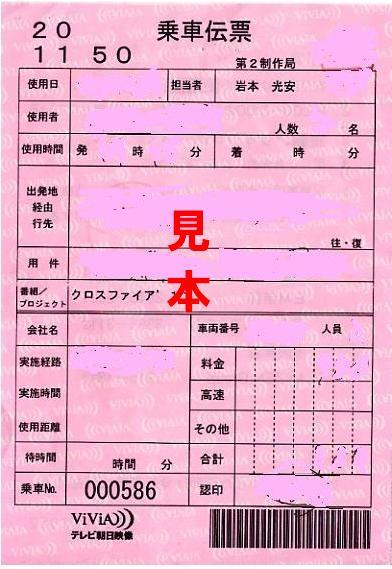 20
11 50
乗車伝票
第2制作局
使用日 担当者 岩本 光安
使用者 人数 名
使用時間 発 時 分 着 時 分
出発地
経由
行先
往・復
用件
番組／
プロジェクト クロスファイア
見本
会社名 車両番号 人員
実施経路 料金
実施時間 高速
使用距離 その他
待時間 時間 分 合計
乗車No. 000586 認印
ViViA
テレビ朝日映像